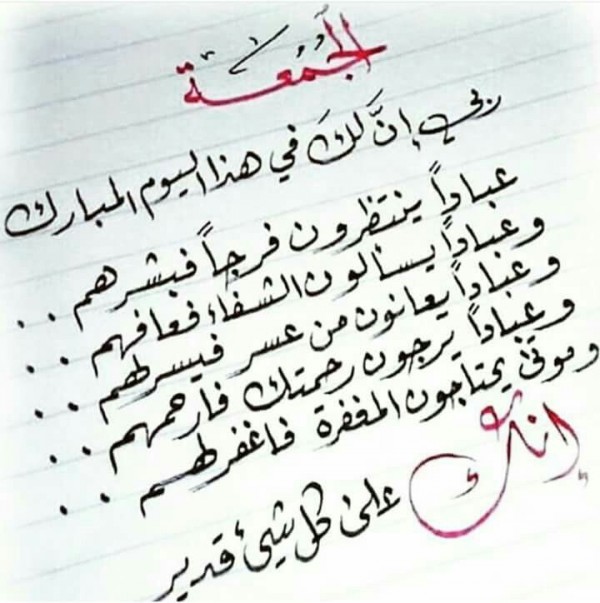 الجُمُعَة
ربي إنَّ لكَ في هذا اليوم المبارك
عباداً ينتظرون فرجاً فبشرهم ..
وعباداً يسألون الشفاء فعافهم ..
وعباداً يعانون من عسر فيسرلهم ..
وعباداً يرجون رحمتك فارحمهم ..
وموتى يحتاجون المغفرة فاغفرلهم ..
إنك
على كل شيئ قدير